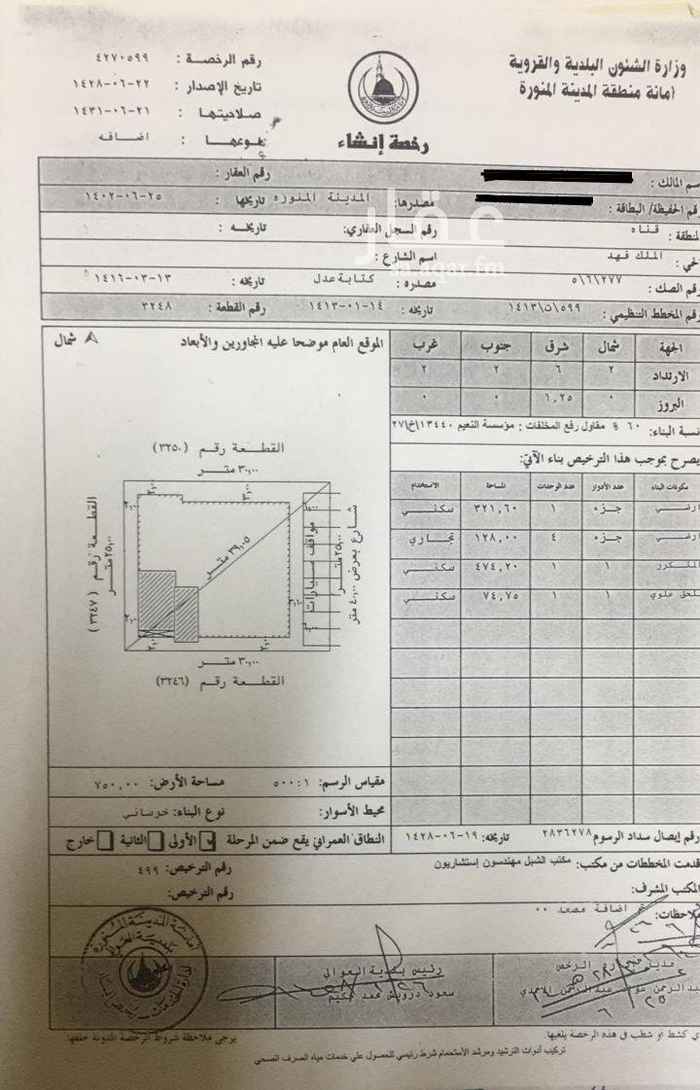 وزارة الشئون البلدية والقروية
أمانة منطقة المدينة المنورة
رخصة إنشاء
رقم الرخصة : ٤٢٧٠٥٩٩
تاريخ الإصدار : ٢٢-٠٦-١٤٢٨
صلاحيتها : ٢١-٠٦-١٤٣١
نوعها : اضافه
اسم المالك :
رقم العقار :
رقم الحفيظة/ البطاقة :
مصدرها: المدينة المنوره تاريخها : ٢٥-٠٦-١٤٠٢
المنطقة : قناه
رقم السجل العقاري: تاريخه :
الحي : الملك فهد
اسم الشارع :
رقم الصك : ٥\٦\٢٧٧
مصدره : كتابة عدل تاريخه : ١٣-٠٣-١٤١٦
رقم المخطط التنظيمي : ٥٩٩\٥\١٤١٣
تاريخه : ١٤-٠١-١٤١٣ رقم القطعة : ٣٢٤٨
الجهة شمال شرق جنوب غرب
الارتداد ٢ ٦ ٢ ٢
البروز ٠ ١,٢٥ ٠ ٠
نسبة البناء: ٦٠ % مقاول رفع المخلفات : مؤسسة النعيم ١٣٤٤٠\خ\٢٧
يصرح بموجب هذا الترخيص بناء الآتي:
مكونات البناء عدد الأدوار عدد الوحدات المساحة الاستخدام
ارضي جزء ١ ٣٢١,٦٠ سكني
ارضي جزء ٤ ١٢٨,٠٠ تجاري
المتكرر ١ ١ ٤٧٤,٢٠ سكني
ملحق علوي ١ ١ ٧٤,٧٥ سكني
الموقع العام موضحا عليه المجاورين والأبعاد
شمال
القطعة رقم (٣٢٥٠)
٣٠,٠٠ متر
القطعة رقم (٣٢٤٧)
٢٥,٠٠ متر
٣٩,٠٥ متر
مواقف سيارات
٢٥,٠٠ متر
شارع بعرض ٤٠,٠٠ متر
٣٠,٠٠ متر
القطعة رقم (٣٢٤٦)
مقياس الرسم: ١:٥٠٠ مساحة الأرض: ٧٥٠,٠٠
محيط الأسوار: نوع البناء: خرساني
رقم إيصال سداد الرسوم ٢٨٣٦٢٧٨ تاريخه: ١٩-٠٦-١٤٢٨
النطاق العمراني يقع ضمن المرحلة الأولى الثانية خارج
قدمت المخططات من مكتب: مكتب الشبل مهندسون إستشاريون
رقم الترخيص: ٤٩٩
المكتب المشرف:
رقم الترخيص:
ملاحظات: تم اضافة مصعد ٠٠
رئيس بلدية العوالي
سعود درويش محمد حكيم
أي كشط او شطب في هذه الرخصة يلغيها.
يرجى ملاحظة شروط الرخصة المدونة خلفها.
تركيب أدوات الترشيد ومرشد الأستحمام شرط رئيسي للحصول على خدمات مياه الصرف الصحي
عقار
sa.aqar.fm